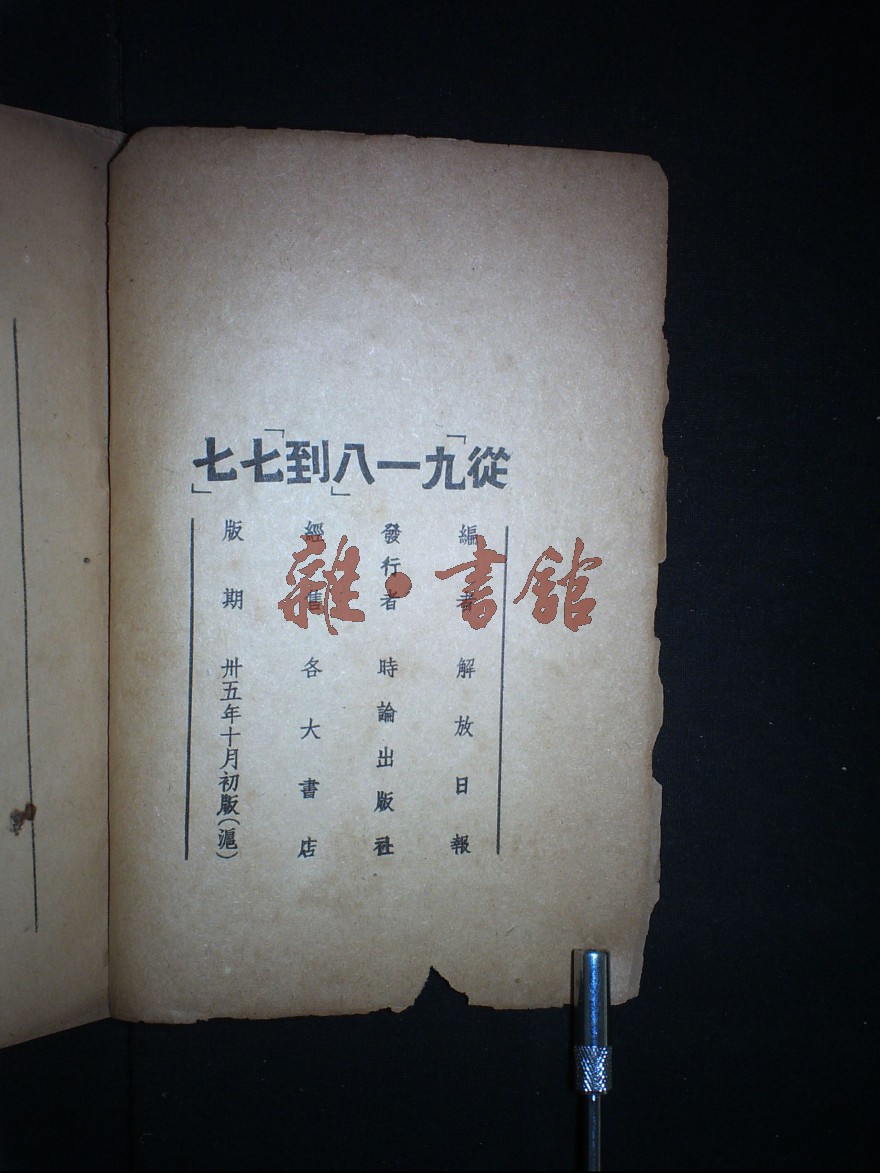 從「九一八」到「七七」
編著 解放日報
發行者 時論出版社
經售 各大書店
版期 卅五年十月初版(滬)
雜·書館